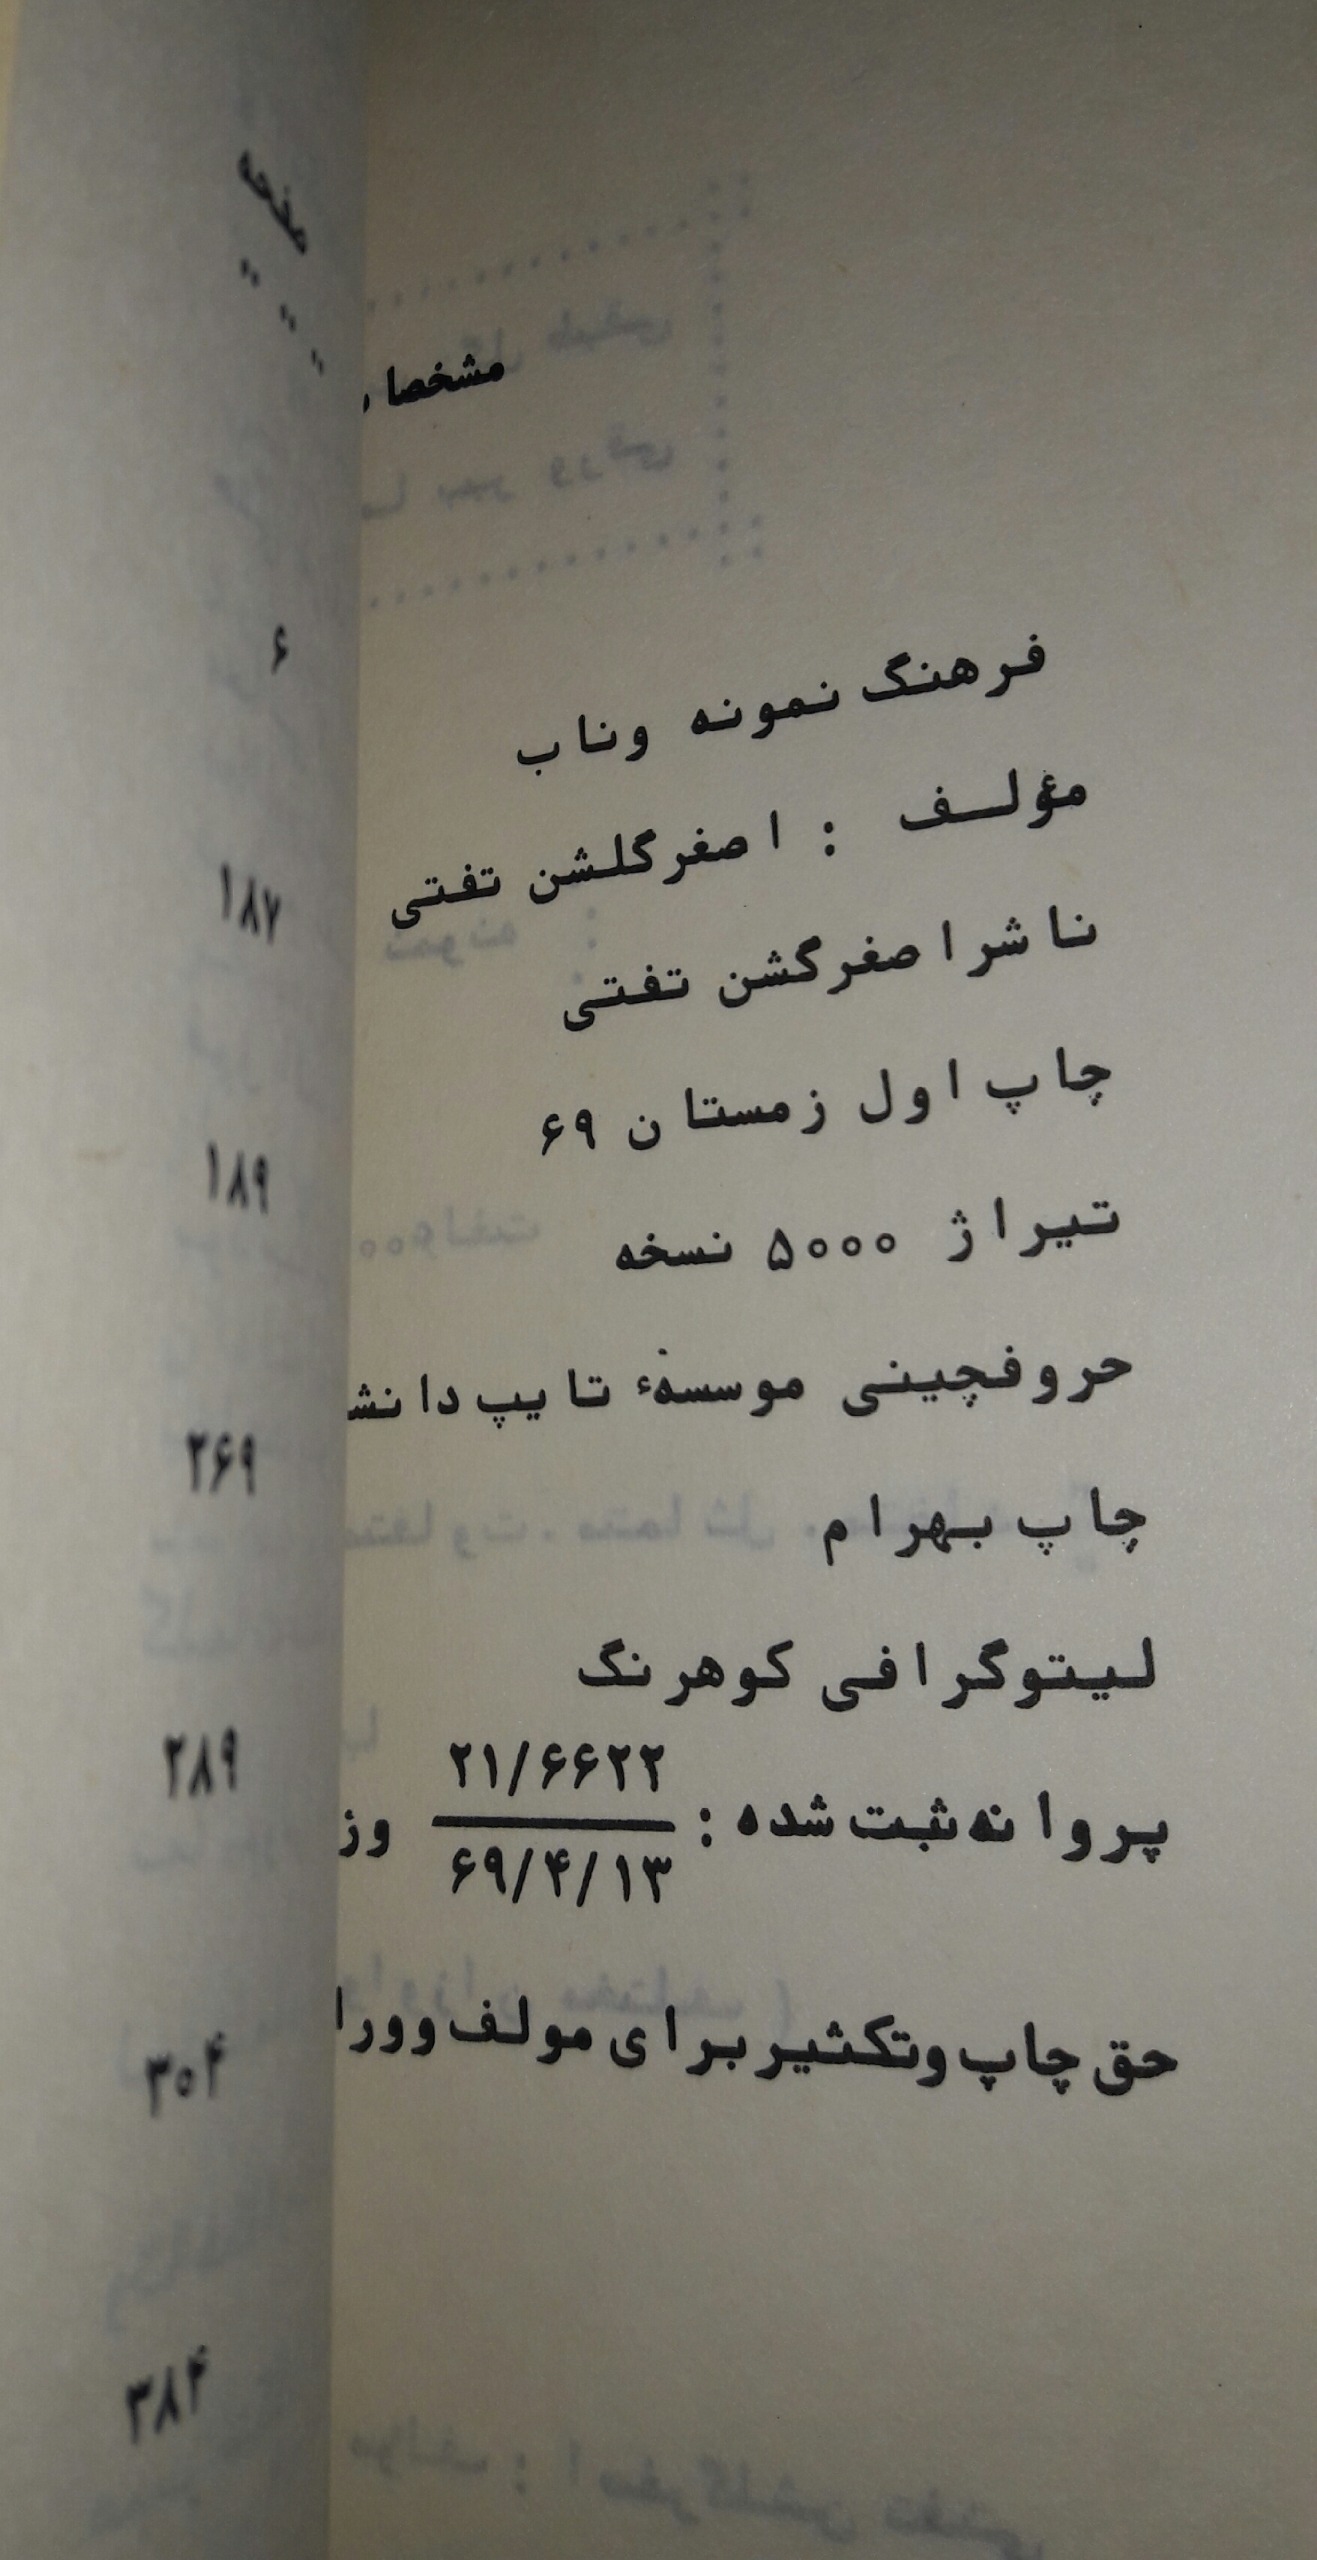 مشخصا
فرهنگ نمونه وناب
مؤلف : اصغرگلشن تفتی
ناشراصغرگشن تفتی
چاپ اول زمستان ۶۹
تیراژ ۵۰۰۰ نسخه
حروفچینی موسسهٔ تایپ دانشـ
چاپ بهرام
لیتوگرافی کوهرنگ
پروانه ثبت شده : ۲۱/۶۶۲۲ وز
۶۹/۴/۱۳
حق چاپ وتکثیر برای مولف وورا
صفحه
۶
۱۸۷
۱۸۹
۲۶۹
۲۸۹
۳۰۴
۳۸۴